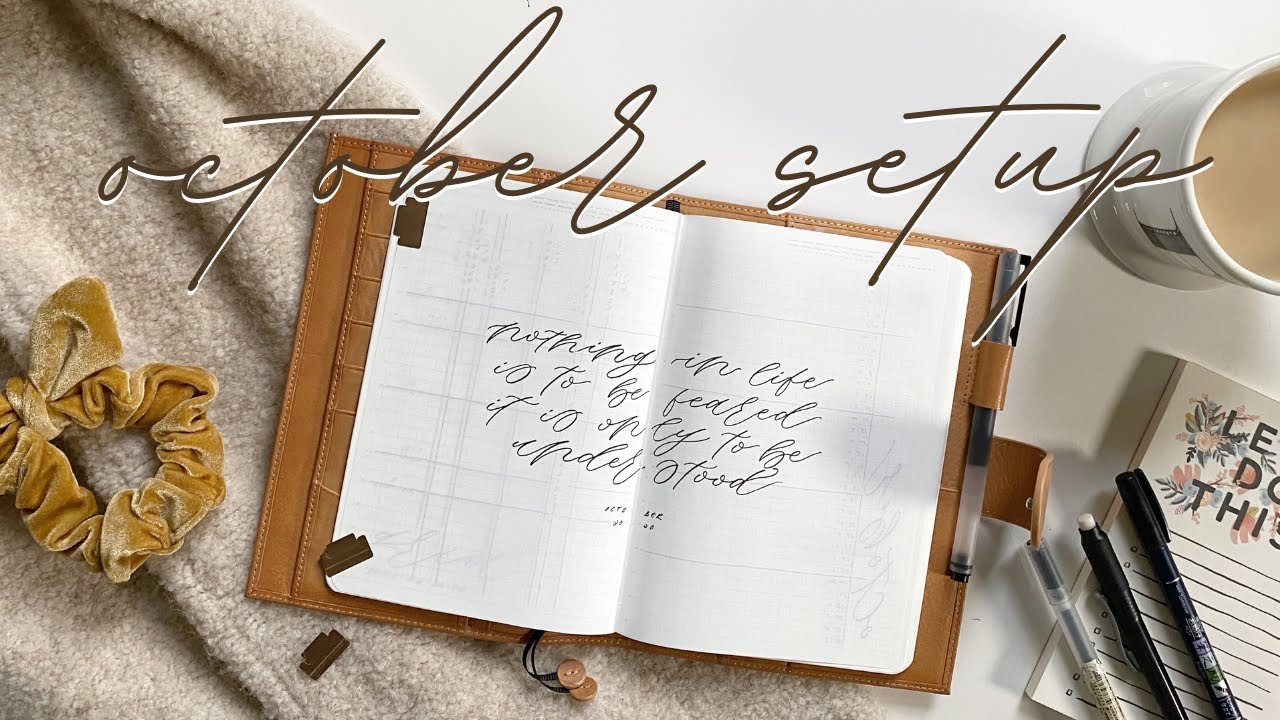 october setup
nothing in life
is to be feared
it is only to be
understood
OCTOBER
LE
DO
THIS